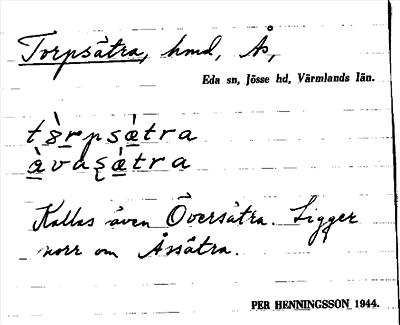 Torpsätra, hmd, Ås,
Eda sn, Jösse hd, Värmlands län.
Kallas även Översätra. Ligger
norr om Åssätra.
PER HENNINGSSON 1944.